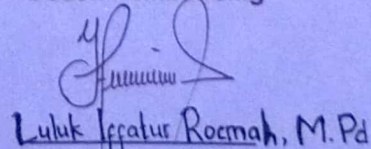 Luluk Iffatur Rocmah, M.Pd